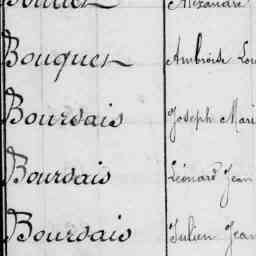 Alexandre
Bouquet Ambroise Lou
Boursais Joseph Mari
Boursais Léonard Jean
Boursais Julien Jean